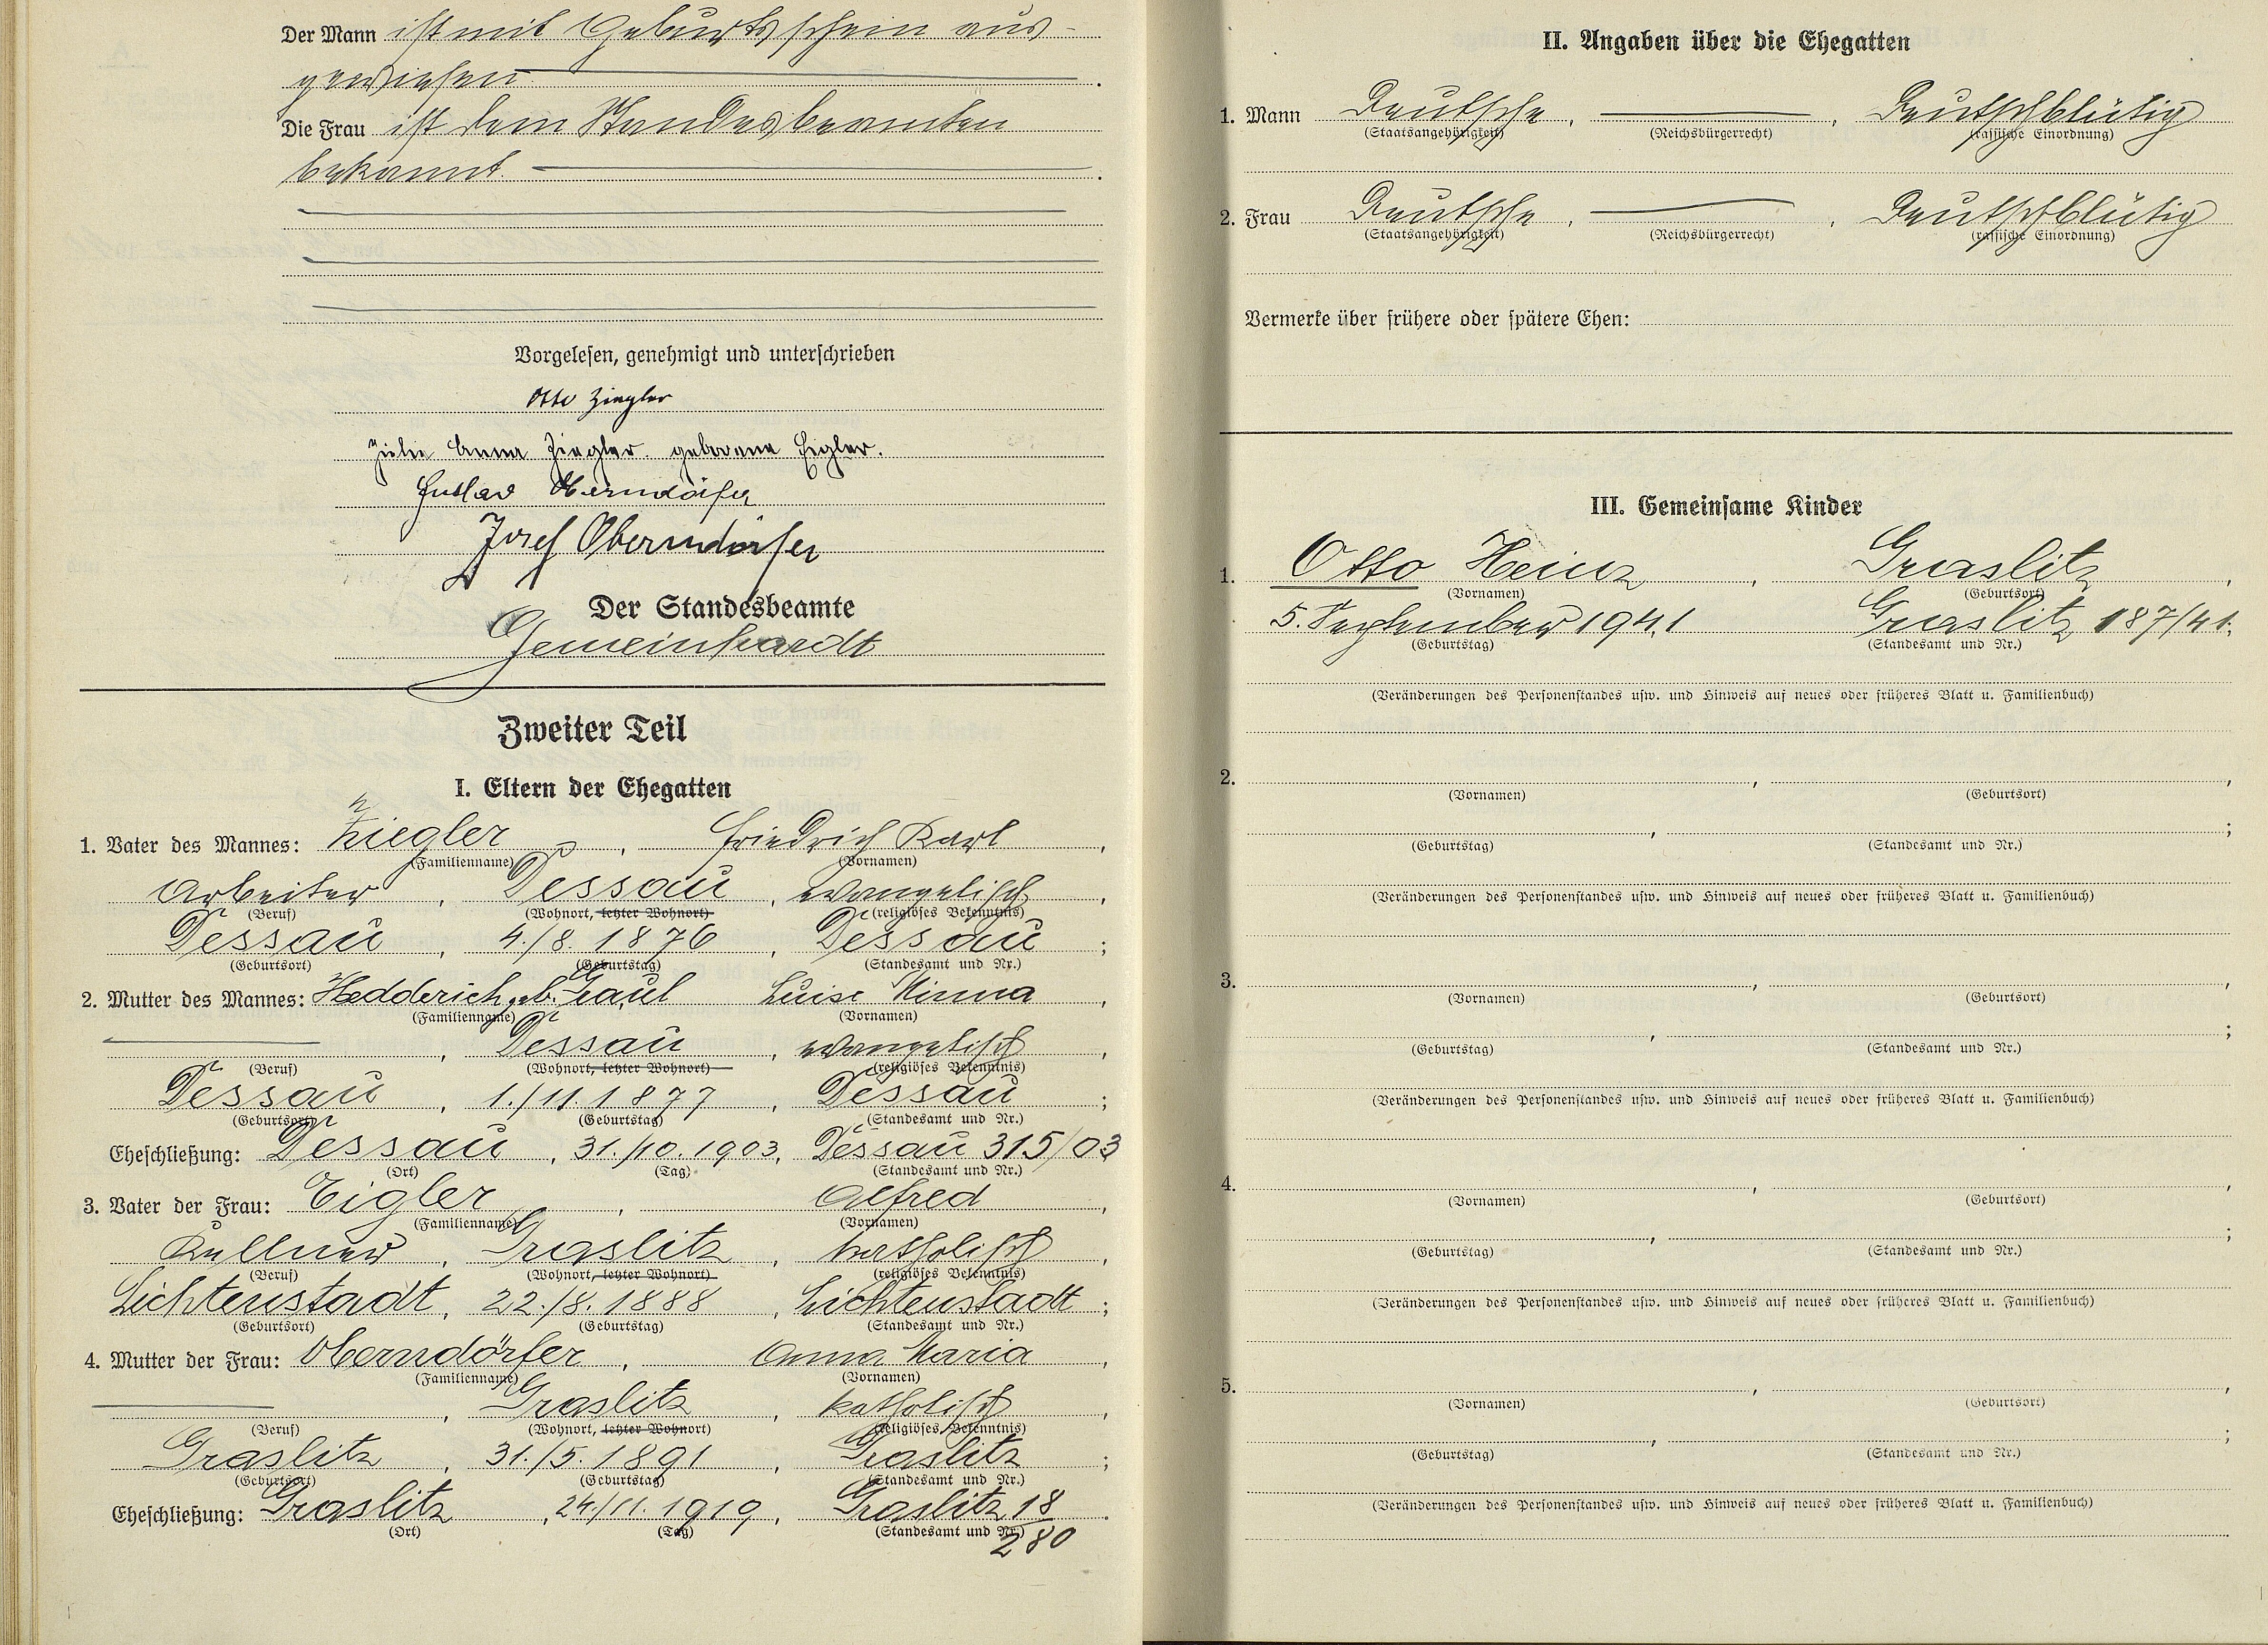 Der Mann ist mit Geburtsschein aus-
gewiesen.
Die Frau ist dem Standesbeamten
bekannt.
Vorgelesen, genehmigt und unterschrieben
Otto Ziegler
Julie Anna Ziegler. geborene Eigler.
Gustav Oberndörfer
Josef Oberndörfer
Der Standesbeamte
Gemeinhardt
Zweiter Teil
I. Eltern der Ehegatten
1. Vater des Mannes: Ziegler, Friedrich Karl,
(Familienname) (Vornamen)
Arbeiter, Dessau, evangelisch,
(Beruf) (Wohnort, letzter Wohnort) (religiöses Bekenntnis)
Dessau, 4./8. 1876, Dessau;
(Geburtsort) (Geburtstag) (Standesamt und Nr.)
2. Mutter des Mannes: Hedderich, geb. Gaul Luise Minna,
(Familienname) (Vornamen)
, Dessau, evangelisch,
(Beruf) (Wohnort, letzter Wohnort) (religiöses Bekenntnis)
Dessau, 1./11. 1877, Dessau;
(Geburtsort) (Geburtstag) (Standesamt und Nr.)
Eheschließung: Dessau, 31./10. 1903, Dessau 315/03
(Ort) (Tag) (Standesamt und Nr.)
3. Vater der Frau: Eigler, Alfred,
(Familienname) (Vornamen)
Kellner, Graslitz, katholisch,
(Beruf) (Wohnort, letzter Wohnort) (religiöses Bekenntnis)
Lichtenstadt, 22./8. 1888, Lichtenstadt;
(Geburtsort) (Geburtstag) (Standesamt und Nr.)
4. Mutter der Frau: Oberndörfer, Anna Maria,
(Familienname) (Vornamen)
, Graslitz, katholisch,
(Beruf) (Wohnort, letzter Wohnort) (religiöses Bekenntnis)
Graslitz, 31./5. 1891, Graslitz;
(Geburtsort) (Geburtstag) (Standesamt und Nr.)
Eheschließung: Graslitz, 24./11. 1919, Graslitz 18
(Ort) (Tag) (Standesamt und Nr.)
280
II. Angaben über die Ehegatten
1. Mann Deutsche, , Deutschblütig
(Staatsangehörigkeit) (Reichsbürgerrecht) (rassische Einordnung)
2. Frau Deutsche, , Deutschblütig
(Staatsangehörigkeit) (Reichsbürgerrecht) (rassische Einordnung)
Vermerke über frühere oder spätere Ehen:
III. Gemeinsame Kinder
1. Otto Heinz, Graslitz,
(Vornamen) (Geburtsort)
5. September 1941 Graslitz 187/41;
(Geburtstag) (Standesamt und Nr.)
(Veränderungen des Personenstandes usw. und Hinweis auf neues oder früheres Blatt u. Familienbuch)
2. , ,
(Vornamen) (Geburtsort)
, ;
(Geburtstag) (Standesamt und Nr.)
(Veränderungen des Personenstandes usw. und Hinweis auf neues oder früheres Blatt u. Familienbuch)
3. , ,
(Vornamen) (Geburtsort)
, ;
(Geburtstag) (Standesamt und Nr.)
(Veränderungen des Personenstandes usw. und Hinweis auf neues oder früheres Blatt u. Familienbuch)
4. , ,
(Vornamen) (Geburtsort)
, ;
(Geburtstag) (Standesamt und Nr.)
(Veränderungen des Personenstandes usw. und Hinweis auf neues oder früheres Blatt u. Familienbuch)
5. , ,
(Vornamen) (Geburtsort)
, ;
(Geburtstag) (Standesamt und Nr.)
(Veränderungen des Personenstandes usw. und Hinweis auf neues oder früheres Blatt u. Familienbuch)